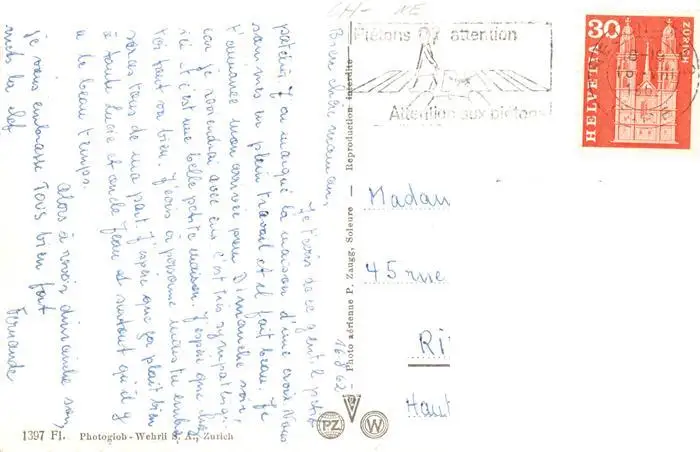 CH- NE
Piétons attention
Attention aux piétons
30
HELVETIA
ZÜRICH
16.8.62
Bien chère maman,
J'écris de ce gentil petit
patelin, j'ai marqué la maison d'une croix. Nous
sommes en plein travail et il fait beau. Je
t'annonce mon arrivée pour Dimanche soir,
car je reviendrai avec eux c'est très sympathique
ici et c'est une belle petite maison. J'espère que chez
toi tout va bien. J'écris à personne mais tu embras
seras tous de ma part. J'espère que ça plait bien
à tante Lucie et oncle Jean et surtout qu'il y
a le beau temps.
Alors à revoir dimanche soir,
je vous embrasse Tous bien fort
mets la clef
Fernande
Photo aérienne P. Zaugg, Soleure — Reproduction interdite
Madam
45 rue
Ri
Haut
PZ
W
1397 Fl. Photoglob-Wehrli S. A., Zurich